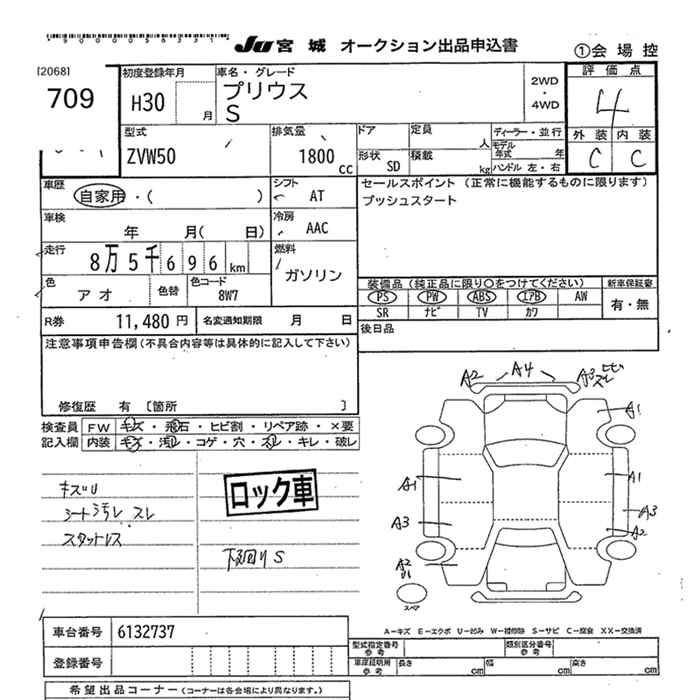 JU 宮城 オークション出品申込書
①会場控
[2068]
709
初度登録年月
H30 月
車名・グレード
プリウス
S
2WD
・
4WD
評価点
4
外装 内装
C C
型式
ZVW50
排気量
1800 cc
ドア
形状 SD
定員 人
積載 kg
ディーラー・並行
モデル年式 年
ハンドル 左・右
車歴
自家用・( )
シフト
AT
セールスポイント (正常に機能するものに限ります)
プッシュスタート
車検
年 月( 日)
冷房
AAC
走行
8万5千696km
燃料
ガソリン
色
アオ
色替
色コード
8W7
装備品(純正品に限り○をつけてください)
新車保証書
PS PW ABS エアB AW
SR ナビ TV カワ
有・無
R券 11,480円
名変通知期限 月 日
後日品
注意事項申告欄(不具合内容等は具体的に記入して下さい)
修復歴 有 〔箇所 〕
検査員 FW キズ・飛石・ヒビ割・リペア跡・×要
記入欄 内装 キズ・汚れ・コゲ・穴・スレ・キレ・破レ
キズU
シート汚レ スレ
スタットレス
ロック車
下廻りS
A2 A4 A3 ヒビ スレ
A1
A1 A1
A3 A3
A2
A2
U1
スペア
A-キズ E-エクボ U-凹み W-補修跡 S-サビ C-腐食 XX-交換済
車台番号 6132737
登録番号
型式指定番号 参考
類別区分番号 参考
車庫証明用 参考
長さ cm 幅 cm 高さ cm
希望出品コーナー(コーナーは各会場により異なります。)